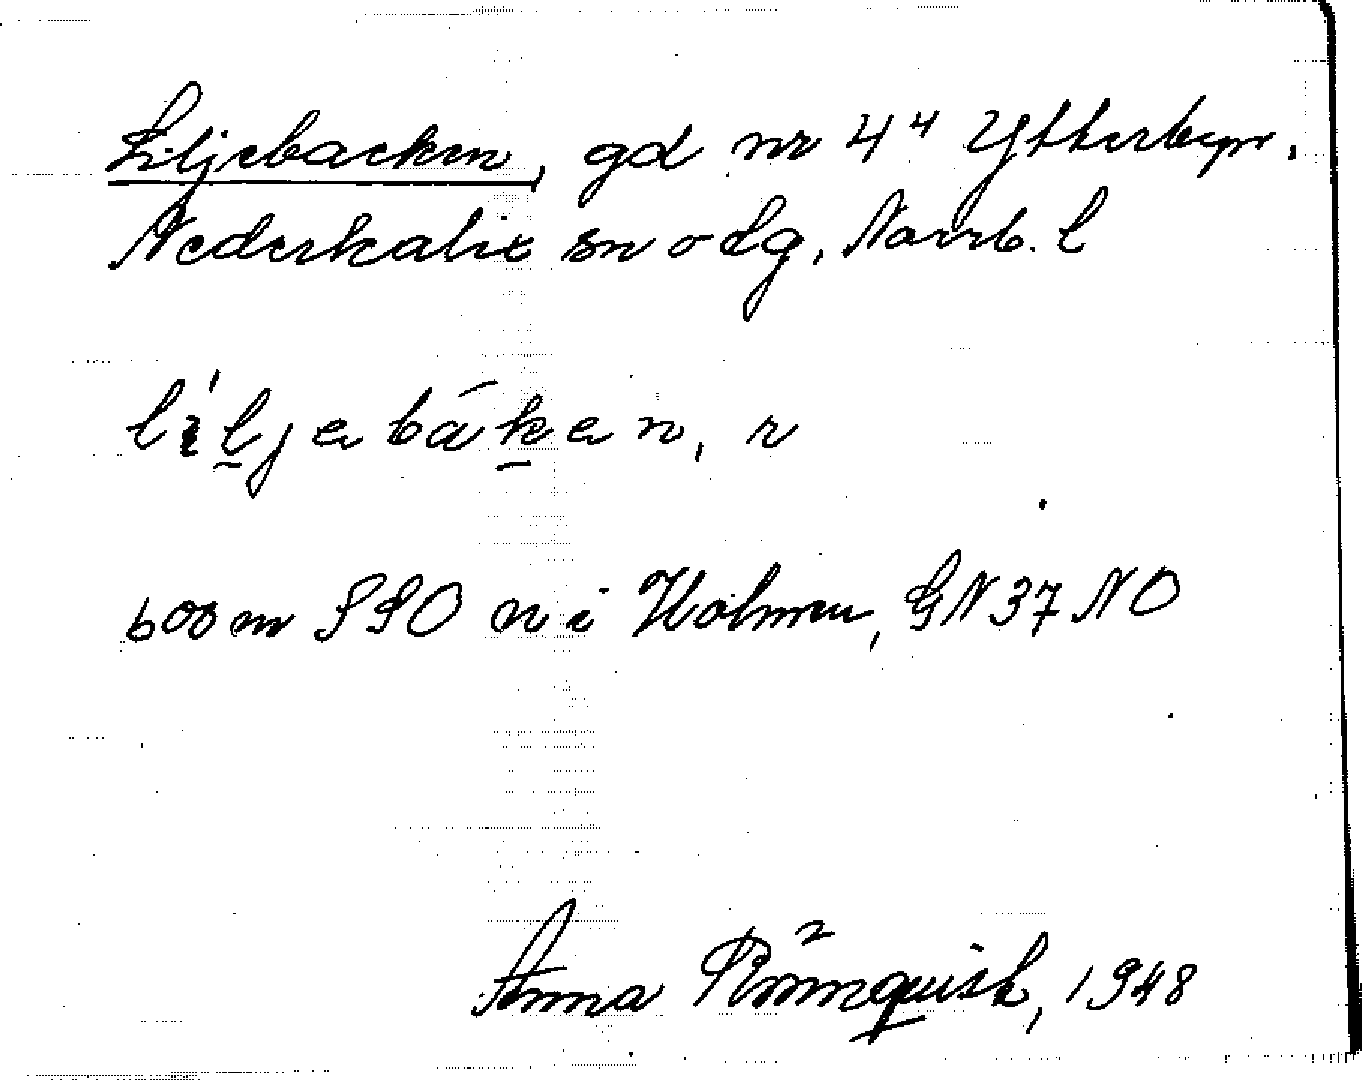 Liljebacken, gd nr 4⁴ Ytterbyn.
Nederkalix sn o dg, Norrb. l
lìljebáken, r
600 m SSO n i Holmen, GN37NO
Anna Rönnquist, 1948